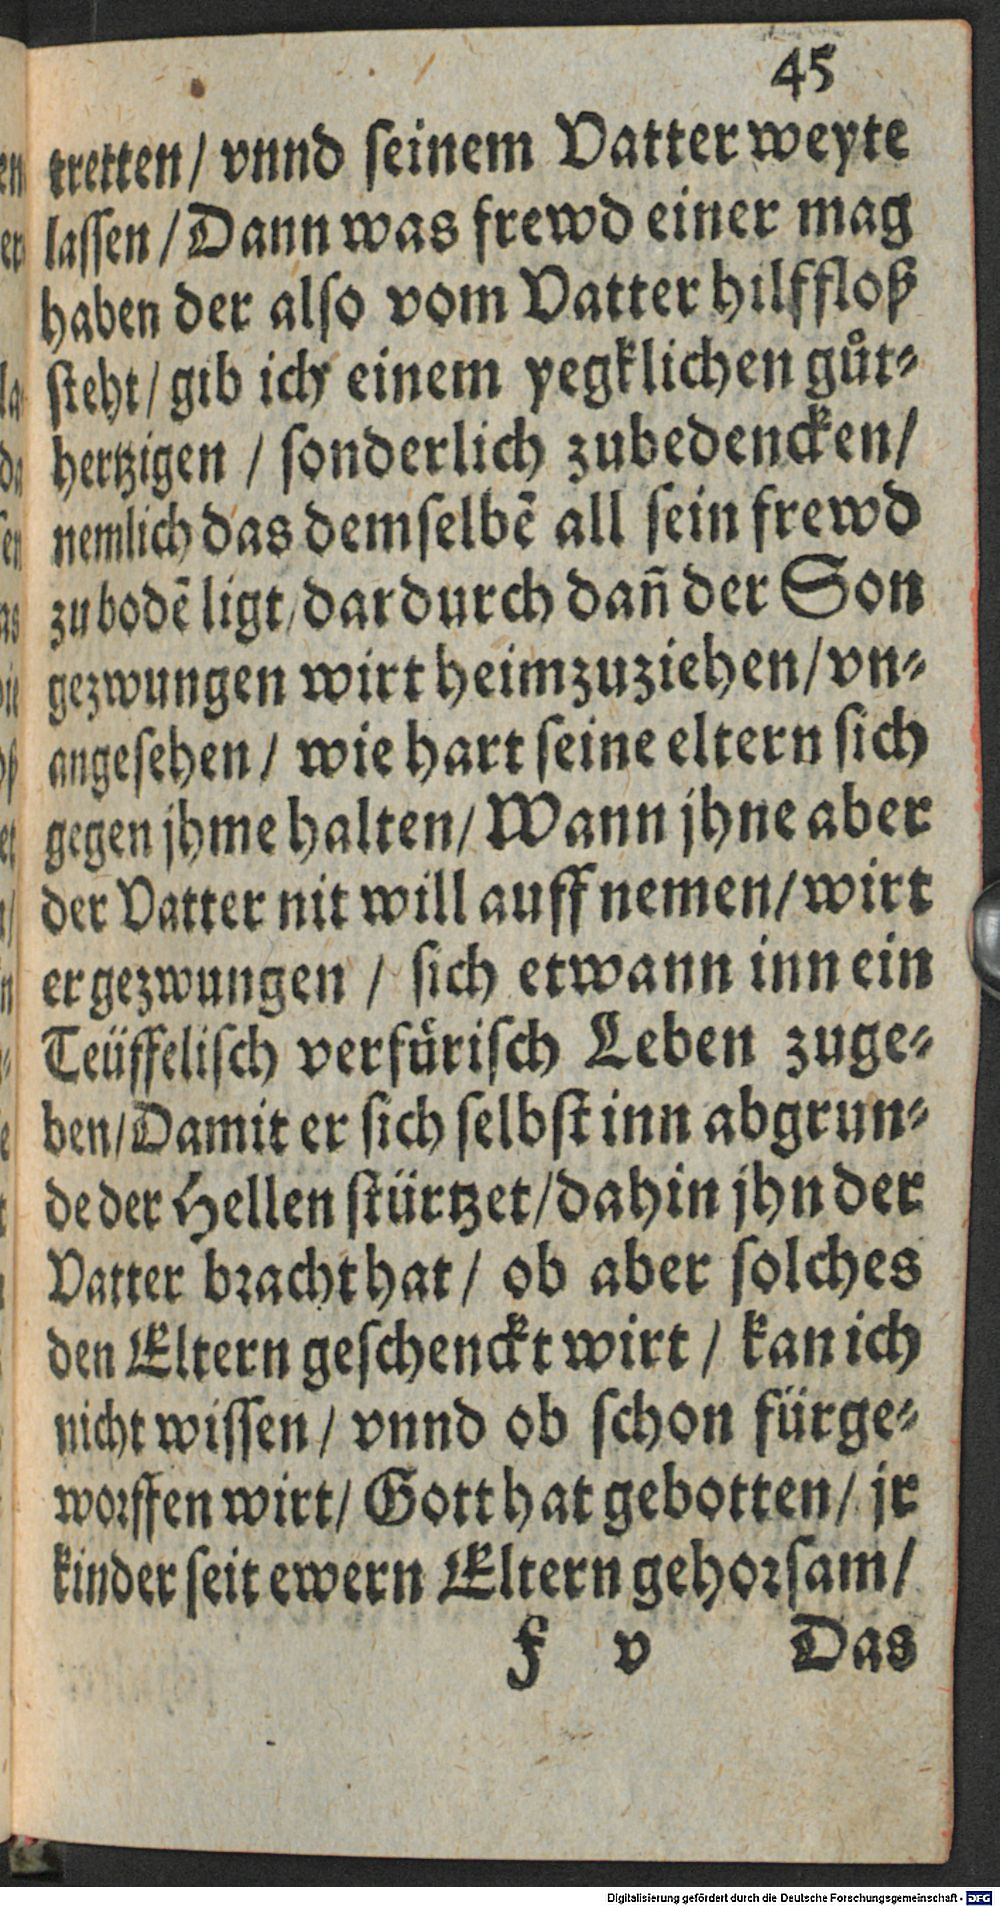 45
tretten / vnnd seinem Vatter weyte
lassen / Dann was frewd einer mag
haben der also vom Vatter hilffloß
steht / gib ich einem yegklichen gůt⸗
hertzigen / sonderlich zubedencken /
nemlich das demselbẽ all sein frewd
zu bodẽ ligt / dardurch dañ der Son
gezwungen wirt heimzuziehen / vn⸗
angesehen / wie hart seine eltern sich
gegen jhme halten / Wann jhne aber
der Vatter nit will auff nemen / wirt
er gezwungen / sich etwann inn ein
Teüffelisch verfuͤrisch Leben zuge⸗
ben / Damit er sich selbst inn abgrun⸗
de der Hellen stürtzet / dahin jhn der
Vatter bracht hat / ob aber solches
den Eltern geschenckt wirt / kan ich
nicht wissen / vnnd ob schon fürge⸗
worffen wirt / Gott hat gebotten / jr
kinder seit ewern Eltern gehorsam /
f v Das
Digitalisierung gefördert durch die Deutsche Forschungsgemeinschaft - DFG